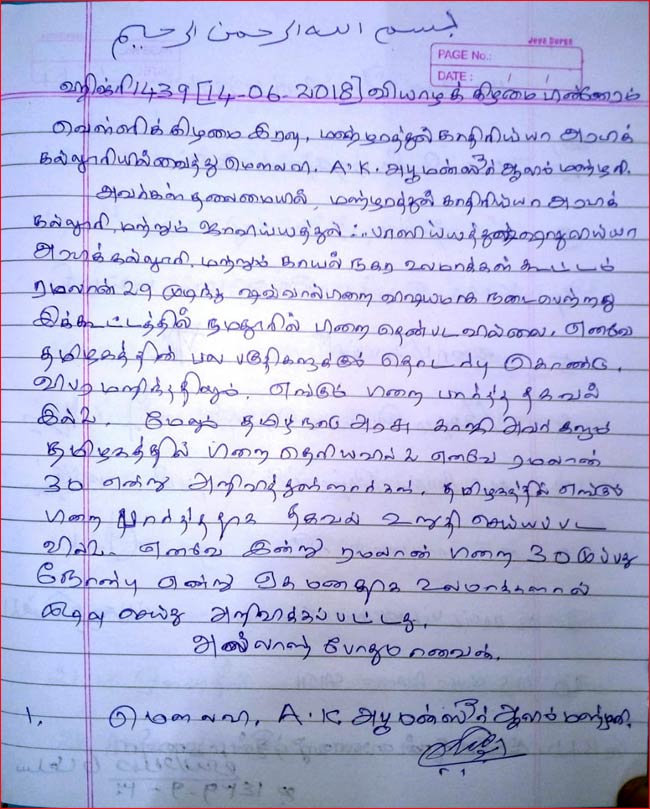 بسم الله الرحمن الرحيم
Jeya Super
PAGE No.:
DATE : / /
ஹிஜ்ரி 1439 [14-06-2018] வியாழக் கிழமை பின்னேரம்
வெள்ளிக்கிழமை இரவு, மஹ்ழரத்துல் காதிரிய்யா அரபிக்
கல்லூரியில் வைத்து மௌலவி. A.K. அபூமன்ஸூர் ஆலிம் மஹ்ழரி.
அவர்கள் தலைமையில், மஹ்ழரத்துல் காதிரிய்யா அரபிக்
கல்லூரி, மற்றும் ஜாவிய்யத்துல் ஃபாஸிய்யத்துஷ் ஷாதுலிய்யா
அரபிக்கல்லூரி, மற்றும் காயல் நகர உலமாக்கள் கூட்டம்
ரமலான் 29 முடிந்து ஷவ்வால் பிறை விஷயமாக நடைபெற்றது
இக்கூட்டத்தில் நமதூரில் பிறை தென்படவில்லை. எனவே
தமிழகத்தின் பல பகுதிகளுக்கும் தொடர்பு கொண்டு,
விபரமறிந்ததிலும், எங்கும் பிறை பார்த்த தகவல்
இல்லை. மேலும் தமிழ்நாடு அரசு காஜி அவர்களும்
தமிழகத்தில் பிறை தெரியவில்லை எனவே ரமலான்
30 என்று அறிவித்துள்ளார்கள். தமிழகத்தில் எங்கும்
பிறை பார்த்ததாக தகவல் உறுதி செய்யப்பட
வில்லை. எனவே இன்று ரமலான் பிறை 30 முப்பது
நோன்பு என்று ஏக மனதாக உலமாக்களால்
முடிவு செய்து அறிவிக்கப்பட்டது.
அல்லாஹ் போதுமானவன்.
1. மௌலவி. A.K. அபூமன்ஸூர் ஆலிம் மஹ்ழரி.